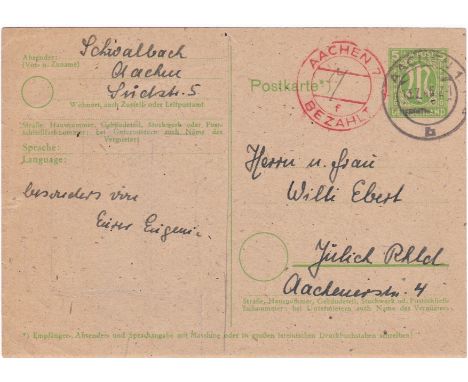 Absender:
(Vor- u. Zuname)
Schwalbach
Aachen
Südstr. 5
Wohnort, auch Zustell- oder Leitpostamt
Straße, Hausnummer, Gebäudeteil, Stockwerk oder Post-
schließfachnummer; bei Untermietern auch Name des
Vermieters
Sprache:
Language:
besonders von
Eurer Eugenie
AACHEN 7
f
BEZAHLT
Postkarte*)
5
AACHEN 1
b
Herrn u. Frau
Willi Ebert
Jülich Rhld
Aachenerstr. 4
Straße, Hausnummer, Gebäudeteil, Stockwerk od. Postschließ-
fachnummer; bei Untermietern auch Name des Vermieters
*) Empfänger-, Absender- und Sprachangabe mit Maschine oder in großen lateinischen Druckbuchstaben schreiben!